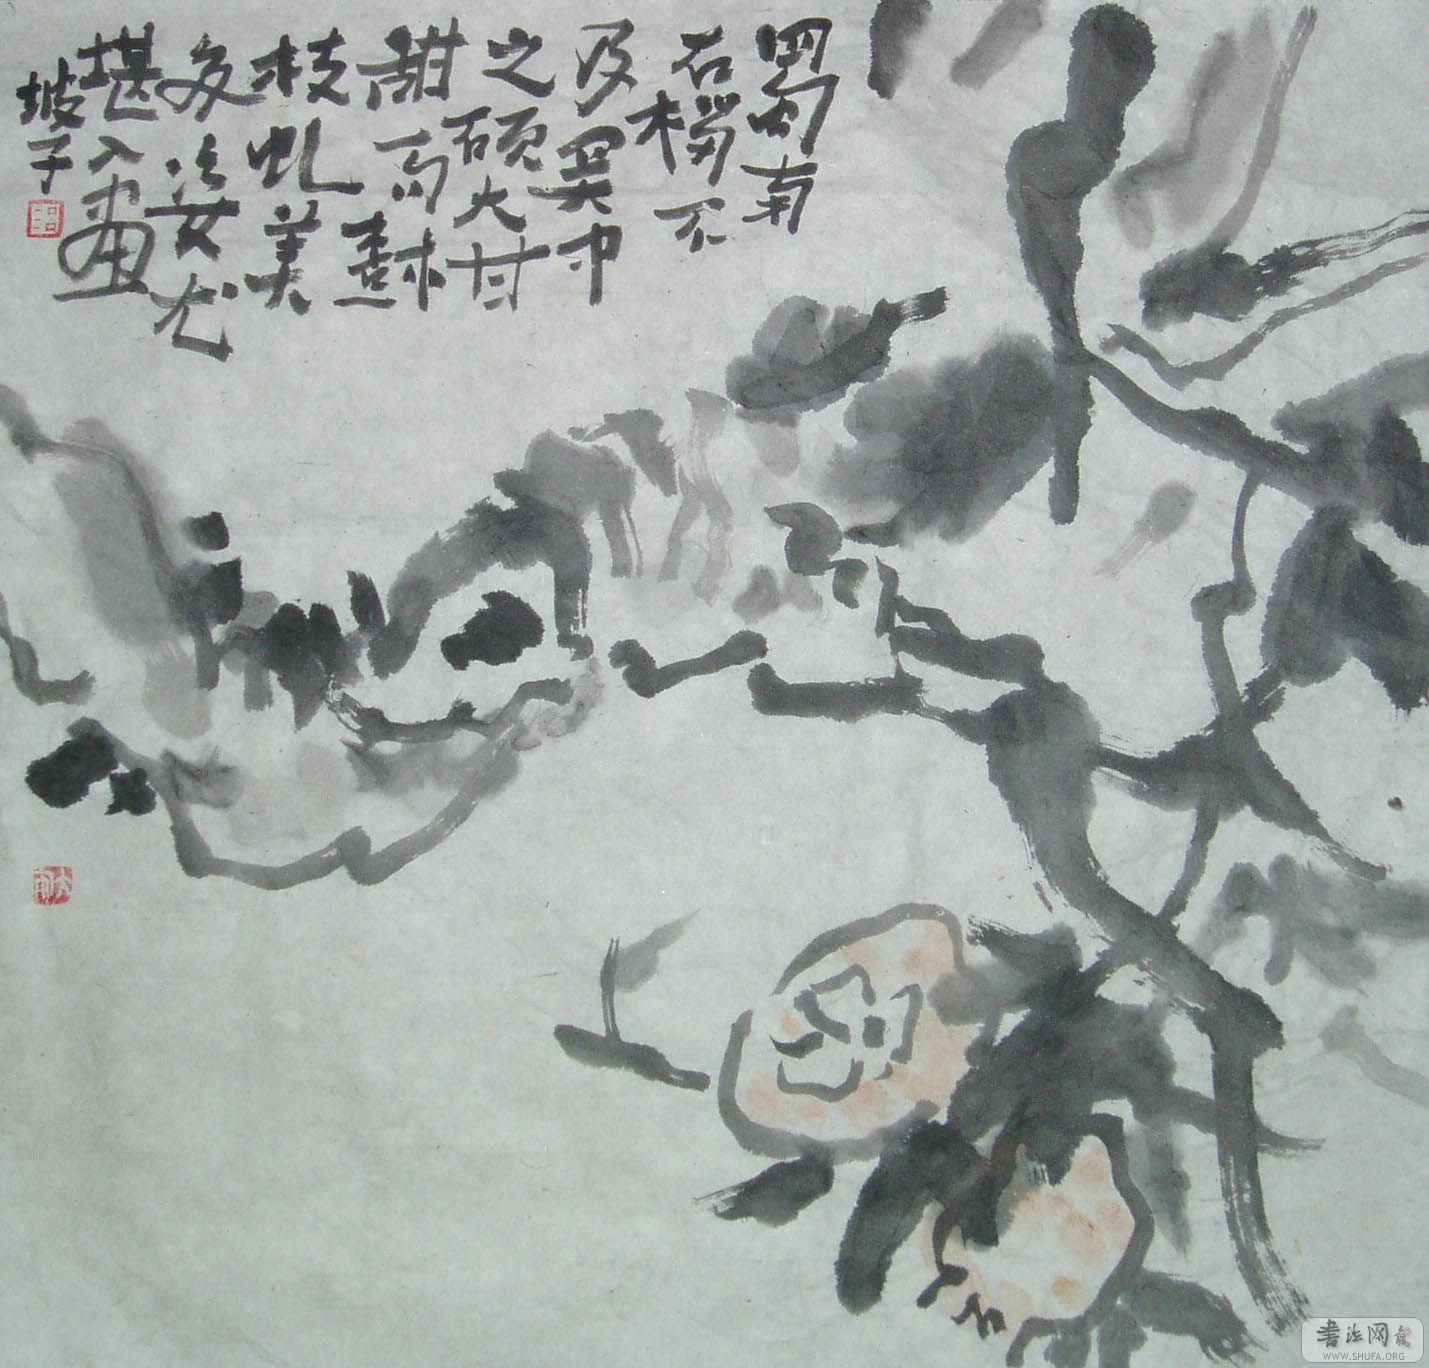 蜀南
石榴不
及吳中
之硕大甘
甜而樹
枝虬美
多姿尤
堪入畫
坡子
书法网
WWW.SHUFA.ORG